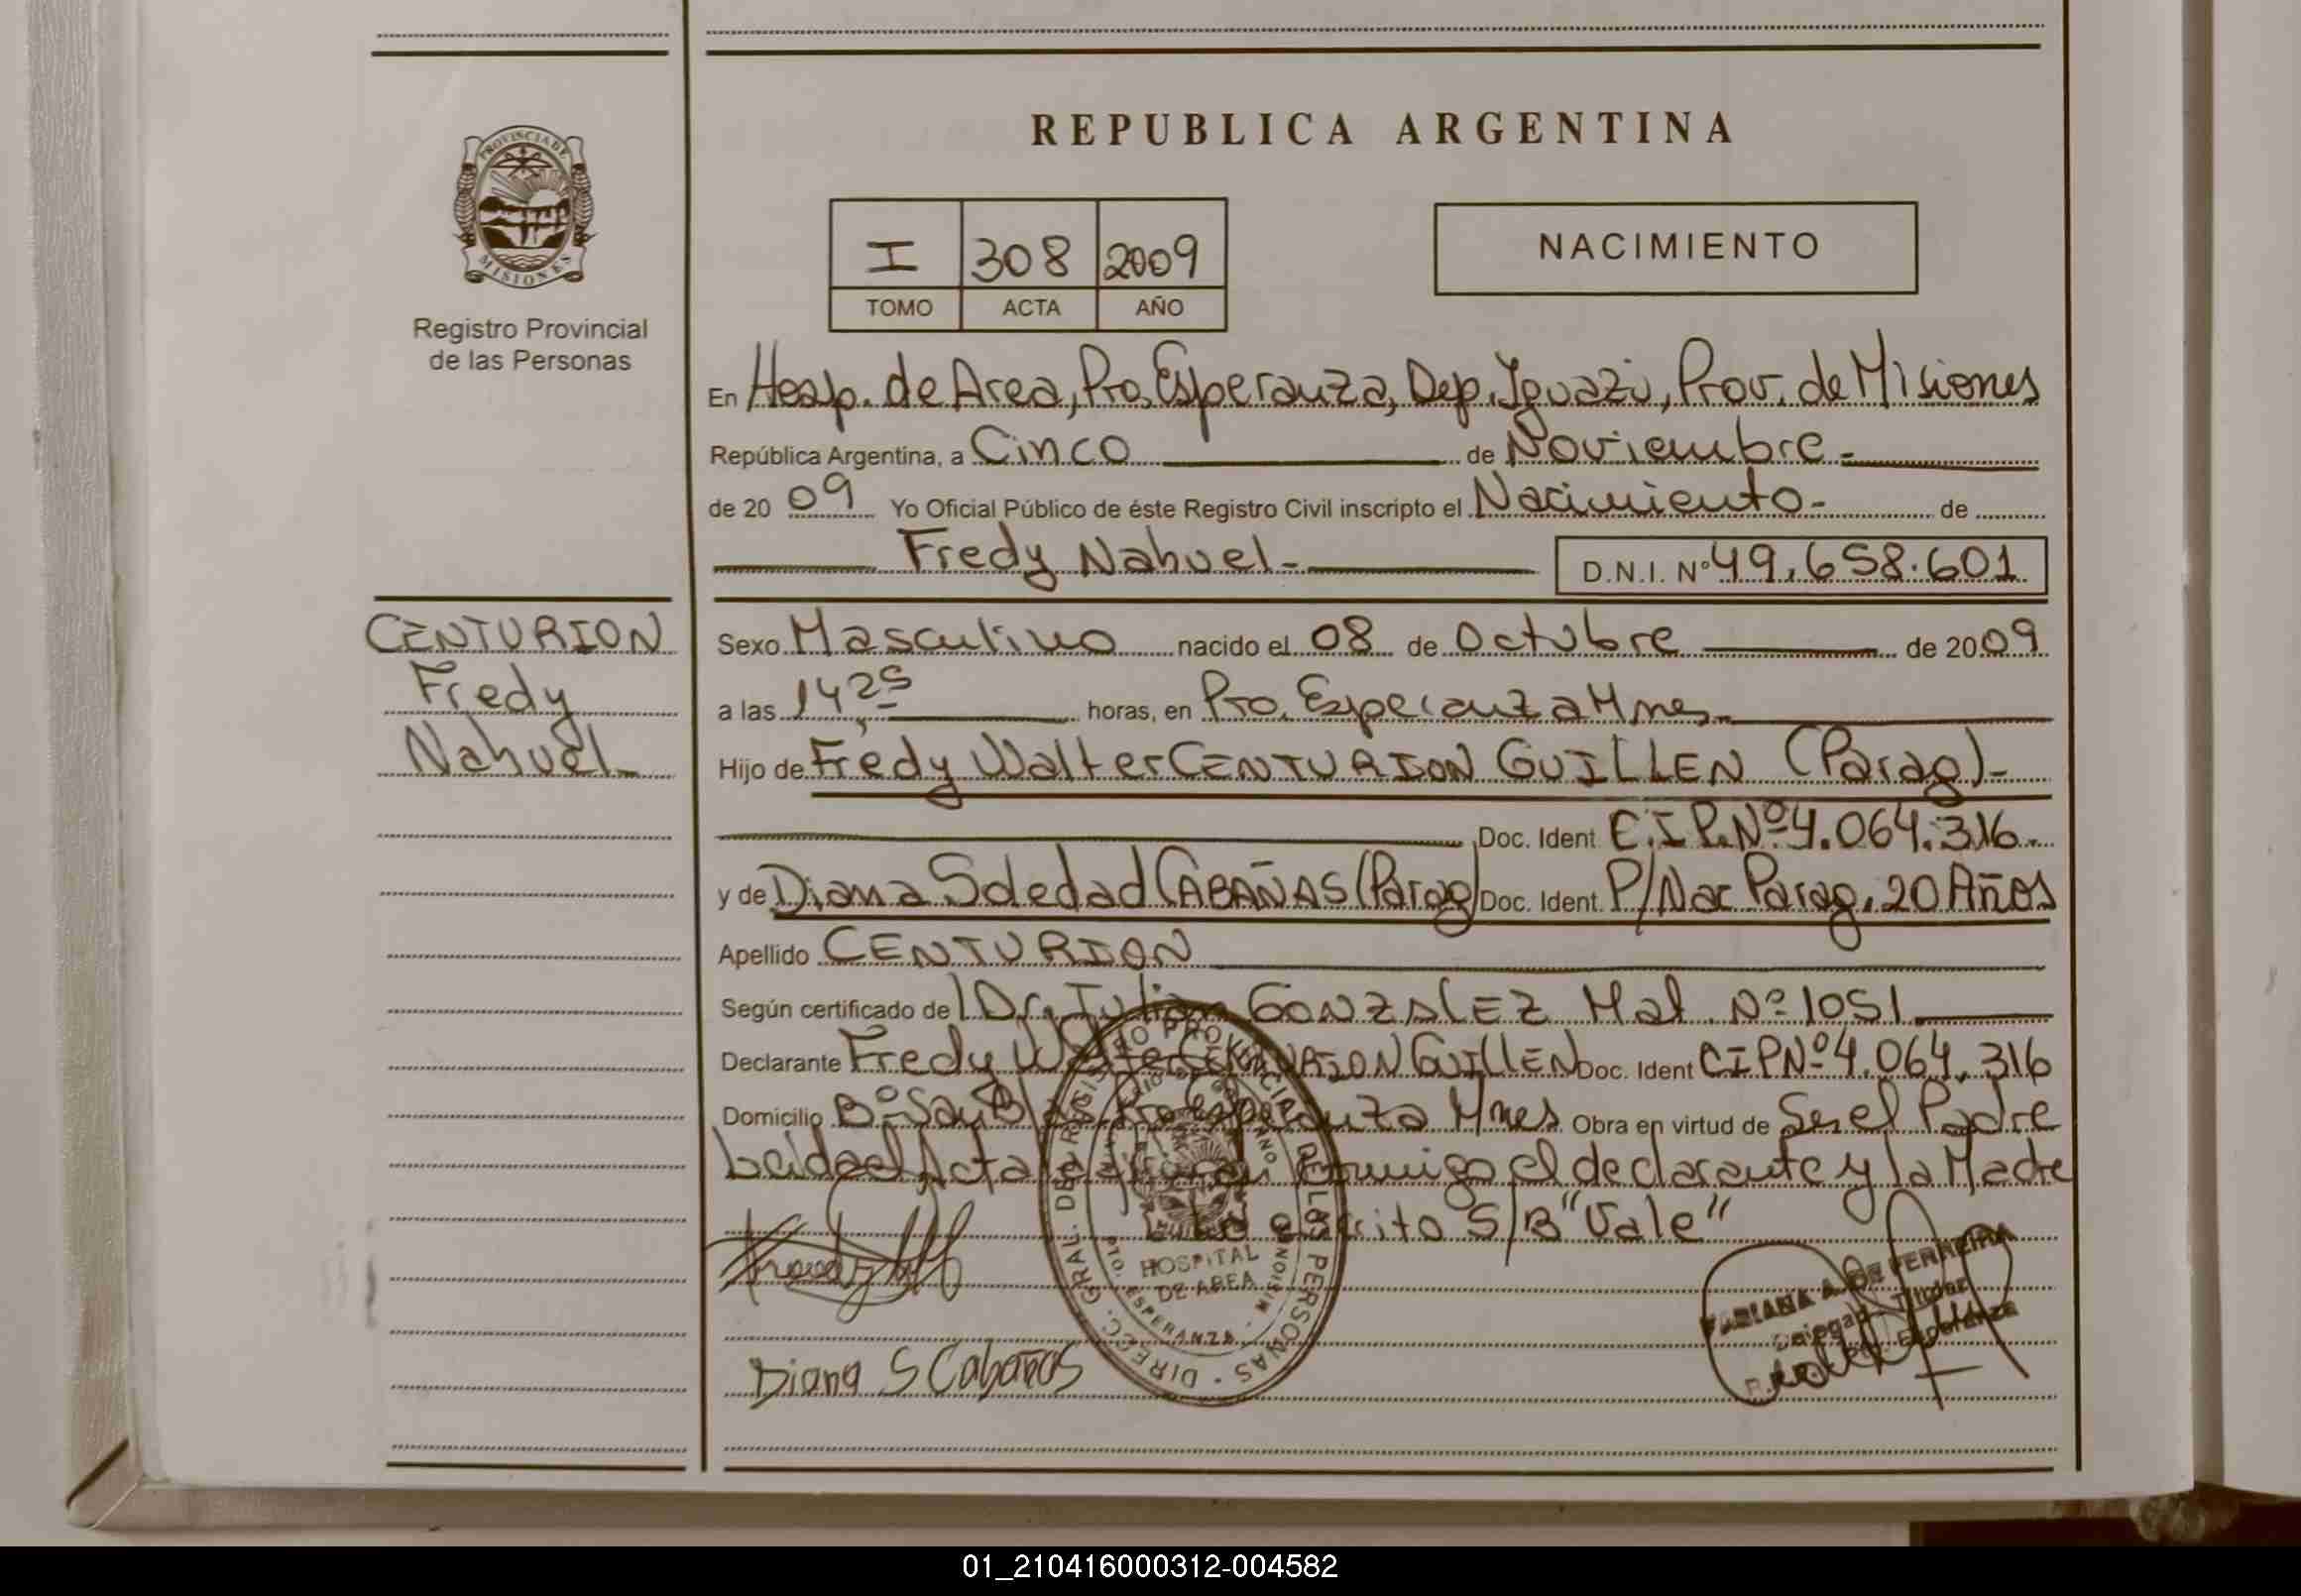 REPUBLICA ARGENTINA
PROVINCIA DE
MISIONES
Registro Provincial
de las Personas
I 308 2009
TOMO ACTA AÑO
NACIMIENTO
En Hosp. de Area, Pto, Esperanza, Dep. Iguazú, Prov. de Misiones
República Argentina, a Cinco de Noviembre.-
de 20 09 Yo Oficial Público de éste Registro Civil inscripto el Nacimiento- de
Fredy Nahuel- D.N.I. Nº 49.658.601
CENTURION
Fredy
Nahuel-
Sexo Masculino nacido el 08 de Octubre de 20 09
a las 14,25 horas, en Pto. Esperanza Mnes-
Hijo de Fredy Walter CENTURION GUILLEN (Parag)-
Doc. Ident. C.I.P. Nº 4.064.316.
y de Diana Soledad CABAÑAS (Parag) Doc. Ident. P/Nac Parag. 20 Años
Apellido CENTURION
Según certificado de Dr. Julian GONZALEZ Mat. Nº 1051.
Declarante Fredy Walter CENTURION GUILLEN Doc. Ident CIP Nº 4.064.316
Domicilio Bº San Esperanza Mnes Obra en virtud de Ser el Padre
Leida el Acta la firman conmigo el declarante y la Madre
escrito S/B "Vale"
Fredy
DIRECC. GRAL. DEL REGISTRO PROVINCIAL DE LAS PERSONAS
HOSPITAL
DE AREA
PTO. ESPERANZA - MISIONES
FABIANA A. DE FERREIRA
Delegada Titular
Pto. Esperanza
Diana S Cabañas
01_210416000312-004582